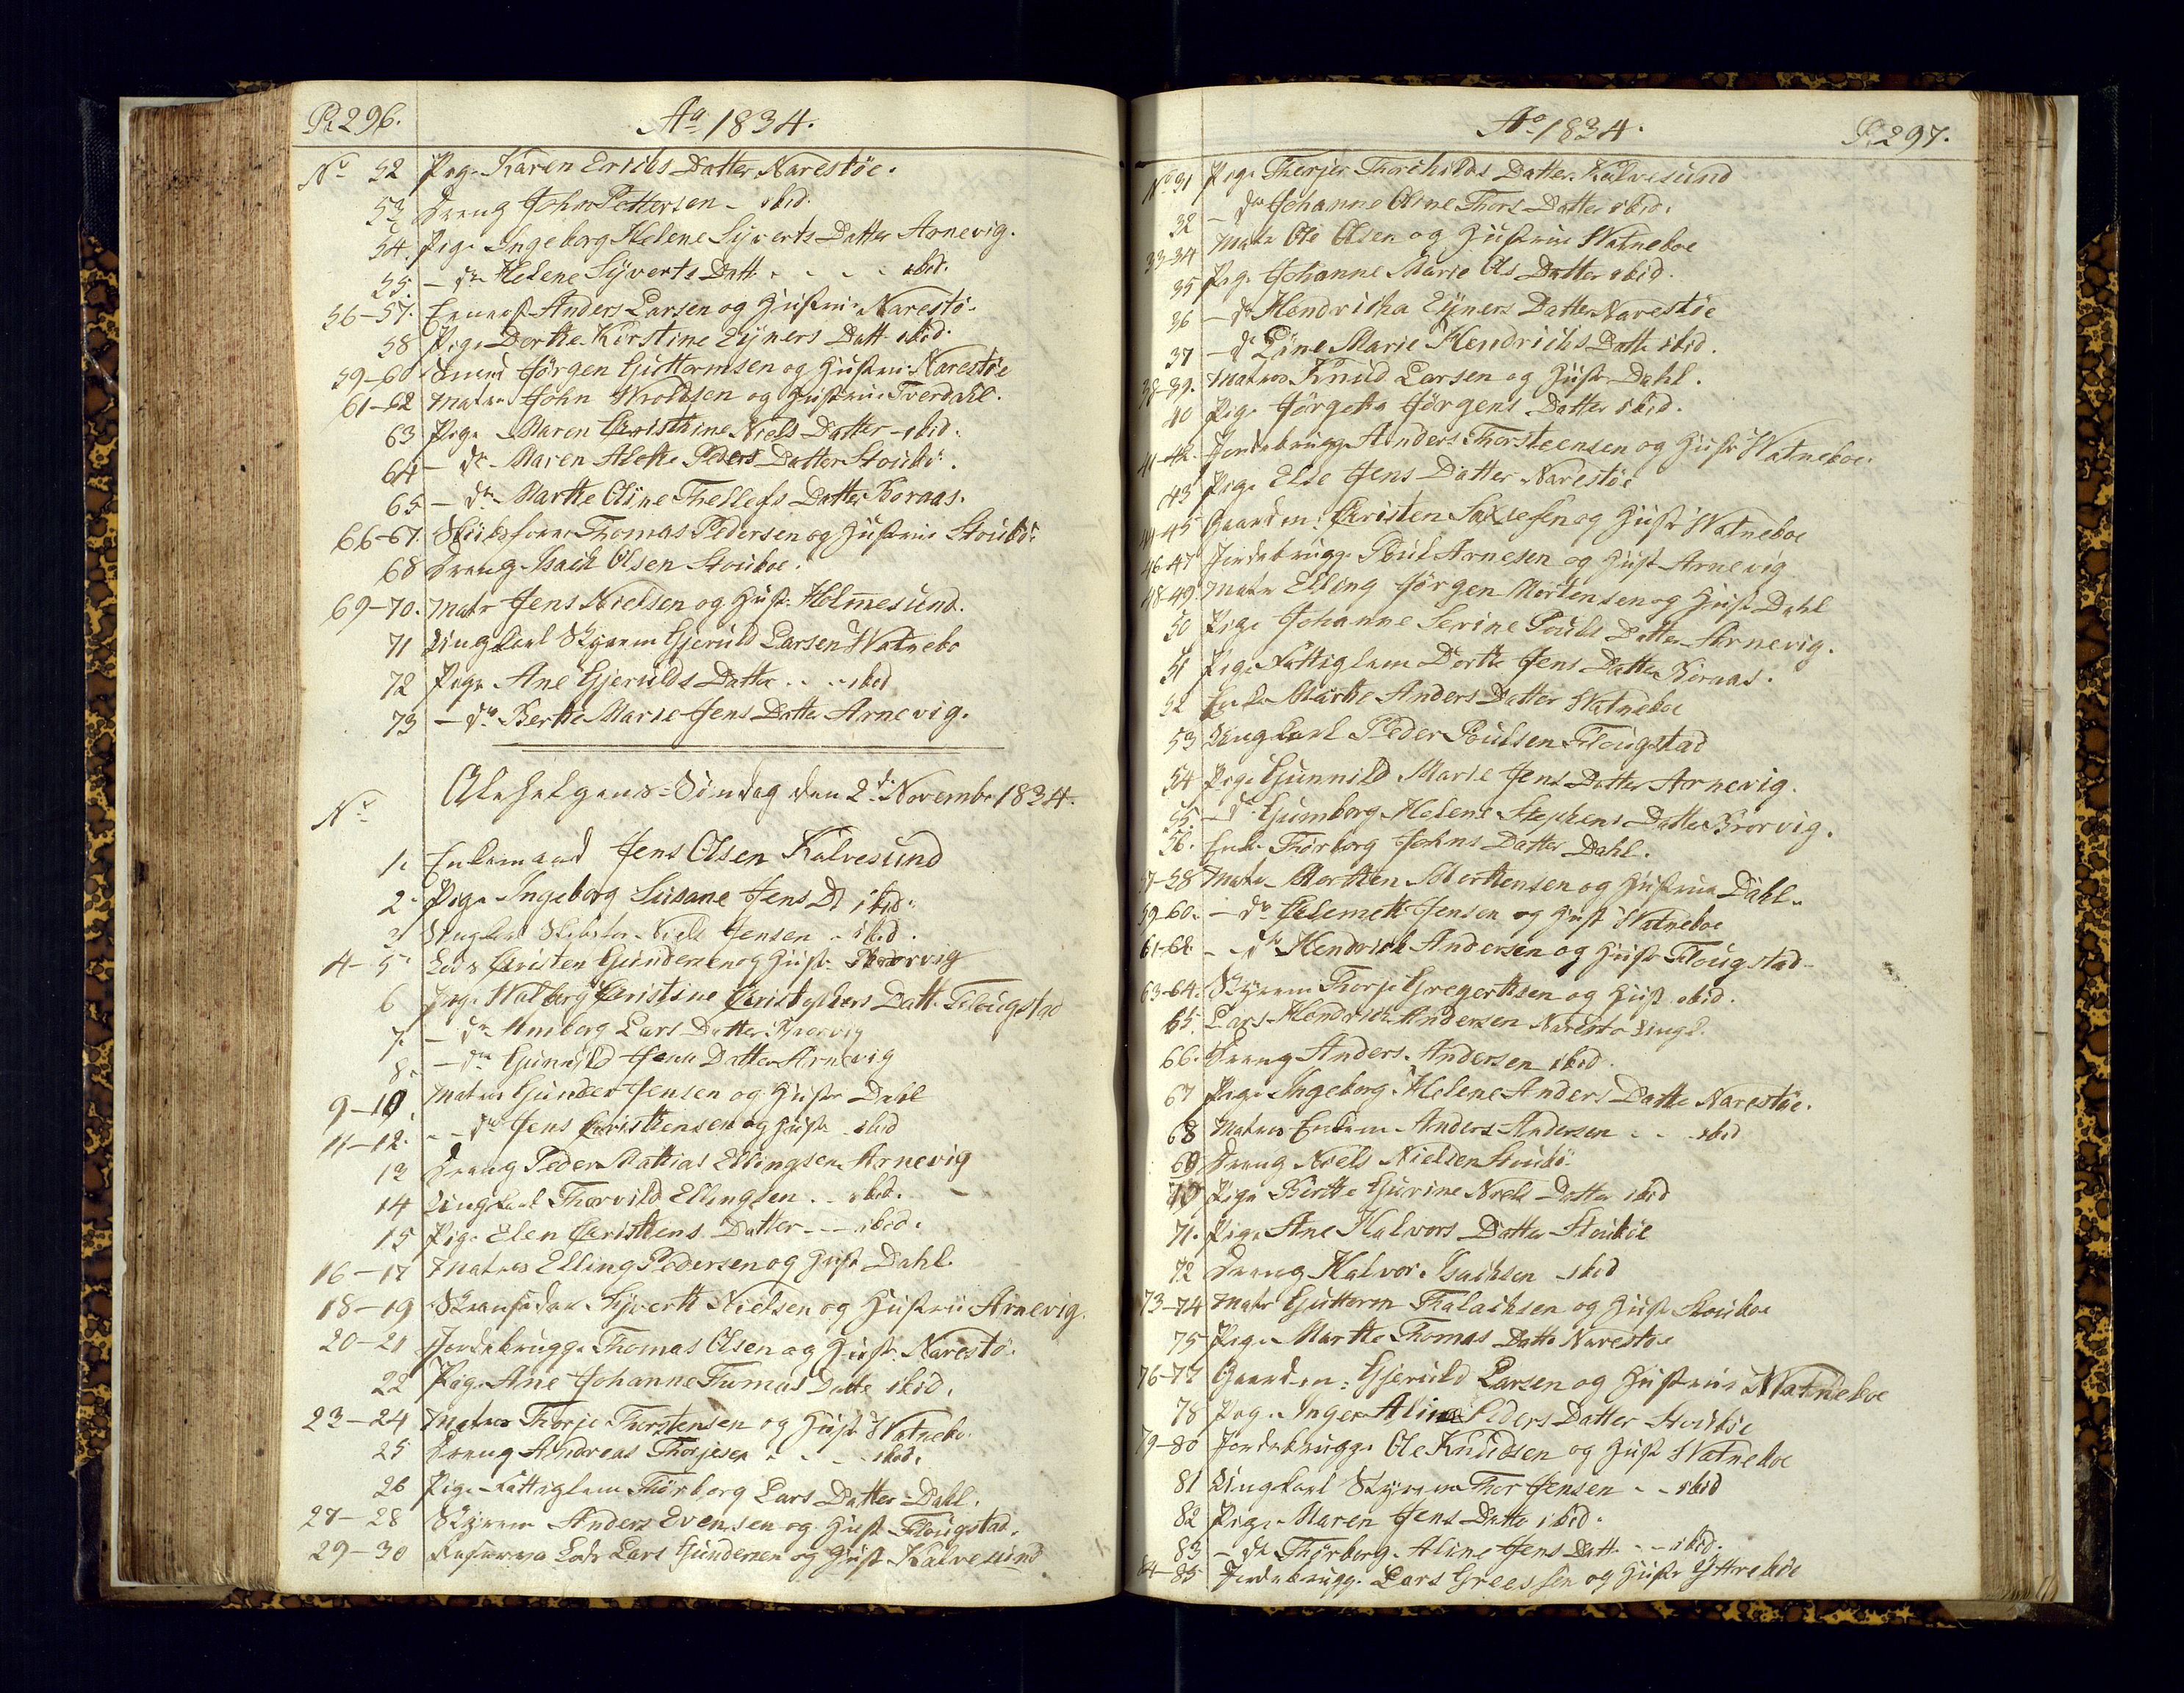 P. 296.
Ao 1834.
No 52 Pige Karen Erichs Datter Narestöe.
53 Dreng John Pettersen - ibid.
54. Pige Ingeborg Helene Syverts Datter Arnevig.
55. - do Helene Syverts Datt . . . . ibid.
56-57. Anders Larsen og Hustrue Narestö.
58 Pige Dorthe Kirstine Eyners Datt ibid.
59-60 Jörgen Guttormsen og Hustrue Narestöe
61-62 Matr John Wroldsen og Hustrue Tverdahl.
63 Pige Maren Christhine Niels Datter - ibid.
64 - do Maren Alethe Peders Datter Stoubö.
65 - do Marthe Oline Thellefs Datter Boraas.
66-67. Skibsfører Thomas Pedersen og Hustrue Stoubö.
68 Dreng Isach Olsen Stouboe.
69-70. Matr Jens Nielsen og Hust. Holmesund.
71 Ungkarl Styrm Gjeruld Larsen Watnebo
72 Pige Ane Gjerulds Datter . . - ibid
73 - do Berthe Marie Jens Datter Arnevig.
No Alehelgens-Söndag den 2d Novembr 1834.
1. Enkemand Jens Olsen Kalvesund
2. Pige Ingeborg Susane Jens D. ibid.
3 Ungkarl Niels Jensen - ibid.
4-5. Lods Christen Gundersen og Hust. Brorvig
6 Pige Walborg Christine Christophers Datt. Flougstad
7. - do Amborg Lars Datter Brorvig
8. - do Gunnild Jens Datter Arnevig
9-10. Matros Gunder Jensen og Hustr Dahl
11-12. - - do Jens Christhensen og Hustr ibid
13 Dreng Peder Mathias Ellingsen Arnevig
14 Ungkarl Thorvild Ellingsen . . ibid.
15 Pige Elen Christhens Datter - - - ibid.
16-17 Matros Elling Pedersen og Hust Dahl.
18-19 Syverth Nielsen og Hustrue Arnevig.
20-21 Jordebrugge Thomas Olsen og Hust. Narestö.
22 Pige Ane Johanne Tumas Datte ibid.
23-24 Matros Thorje Thorstensen og Hust Watnebo.
25 Dreng Andreas Thorjesen . . . - ibid.
26 Pige Fattiglem Thörborg Lars Datter - Dahl.
27-28 Styrm Anders Evensen og Hust Flougstad.
29-30 Lods Lars Gundersen og Hust Kalvesund
Ao 1834.
P. 297.
No 31 Pige Therjer Thorchilds Datter Kalvesund
32 - do Johanne Oline Thors Datter ibid.
33-34 Matr Ole Olsen og Hustrue Watneboe
35 Pige Johanne Marie Ols Datter ibid.
36 - do Hendricha Eyners Datter Narestöe
37 - do Line Marie Hendrichs Datte ibid.
38-39. Matros Knud Larsen og Hustr Dahl.
40 Pige Jörgette Jörgens Datter ibid.
41-42. Jordebrugge Anders Thorsteensen og Hustr Watneboe.
43 Pige Else Jens Datter Narestöe
44-45 Gaardm: Christen Saxlesen og Hust Watneboe
46-47 Jordebrugge Poul Arnesen og Hust Arnevig
48-49. Matr Elling Jörgen Mortensen og Hust Dahl
50 Pige Johanne Serine Pouls Datter Arnevig.
51 Pige Fattiglem Dorthe Jens Datter Boraas.
52 Enke Marthe Anders Datter Watneboe
53 Ungkarl Peder Poulsen Flougstad
54 Pige Gunnild Marie Jens Datter Arnevig.
55 - do Gumborg Helene Stephens Datter Brorvig.
56. Enke Thörborg Johns Datter Dahl.
57-58 Matr Morthen Morthensen og Hustrue Dahl.
59-60. - do Clemett Jensen og Hust Watneboe
61-62 - do Hendrich Andersen og Hust Flougstad
63-64. Styrm Thorje Gregerthsen og Hust ibid.
65. Lars Hendrich Andersen Narestö Ungk.
66. Dreng Anders Andersen ibid.
67 Pige Ingeborg Helene Anders Datte Narestöe.
68 Matros Enkem. Anders Andersen . . ibid
69 Dreng Niels Nielsen Stoubö.
70 Pige Birthe Gurine Niels Datter ibid
71. Pige Ane Halvors Datter Stouböe
72 Dreng Halvor Isachsen ibid
73-74 Matr Guttorm Thalachsen og Hust Stouboe
75 Pige Marthe Thomas Datte Narestöe
76-77 Gaardm: Gjeruld Larsen og Hustrue Watneboe
78 Pige Inger Aline Peders Datter Stouböe
79-80 Jordebrugge Ole Knudsen og Hust Watneboe
81 Ungkarl Styrm Thor Jensen - - ibid
82 Pige Maren Jens Datte ibid.
83 - do Thörborg Aline Jens Datt. - - ibid.
84-85 Jordebrugge Lars Greessen og Hustr Yttreböe